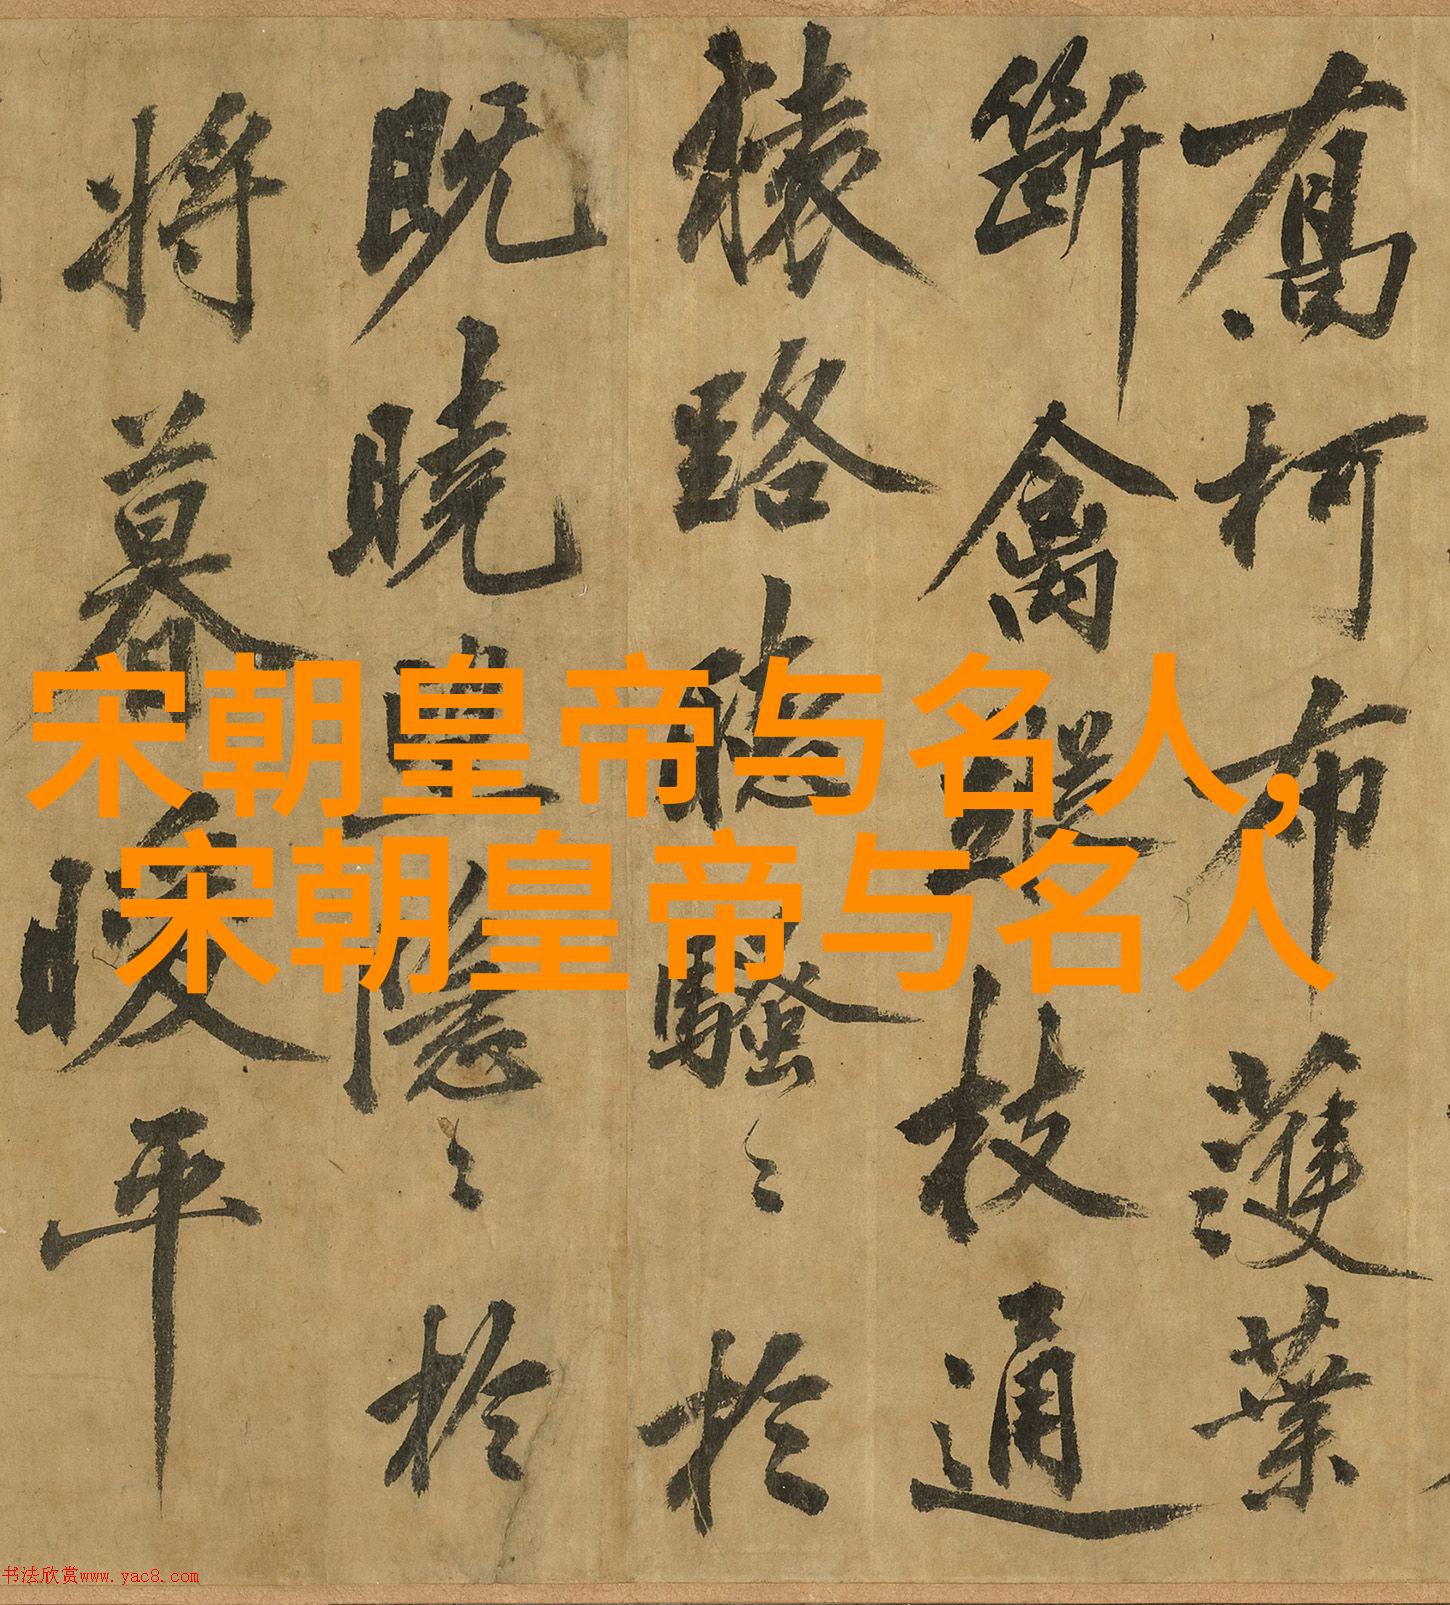 喬柯布濩葉
斷禽蹤枝通
猿路聽騷〻於
既曉望隱〻於
將暮暖平
宋朝皇帝与名人,
宋朝皇帝与名人
书法欣赏www.yac8.com